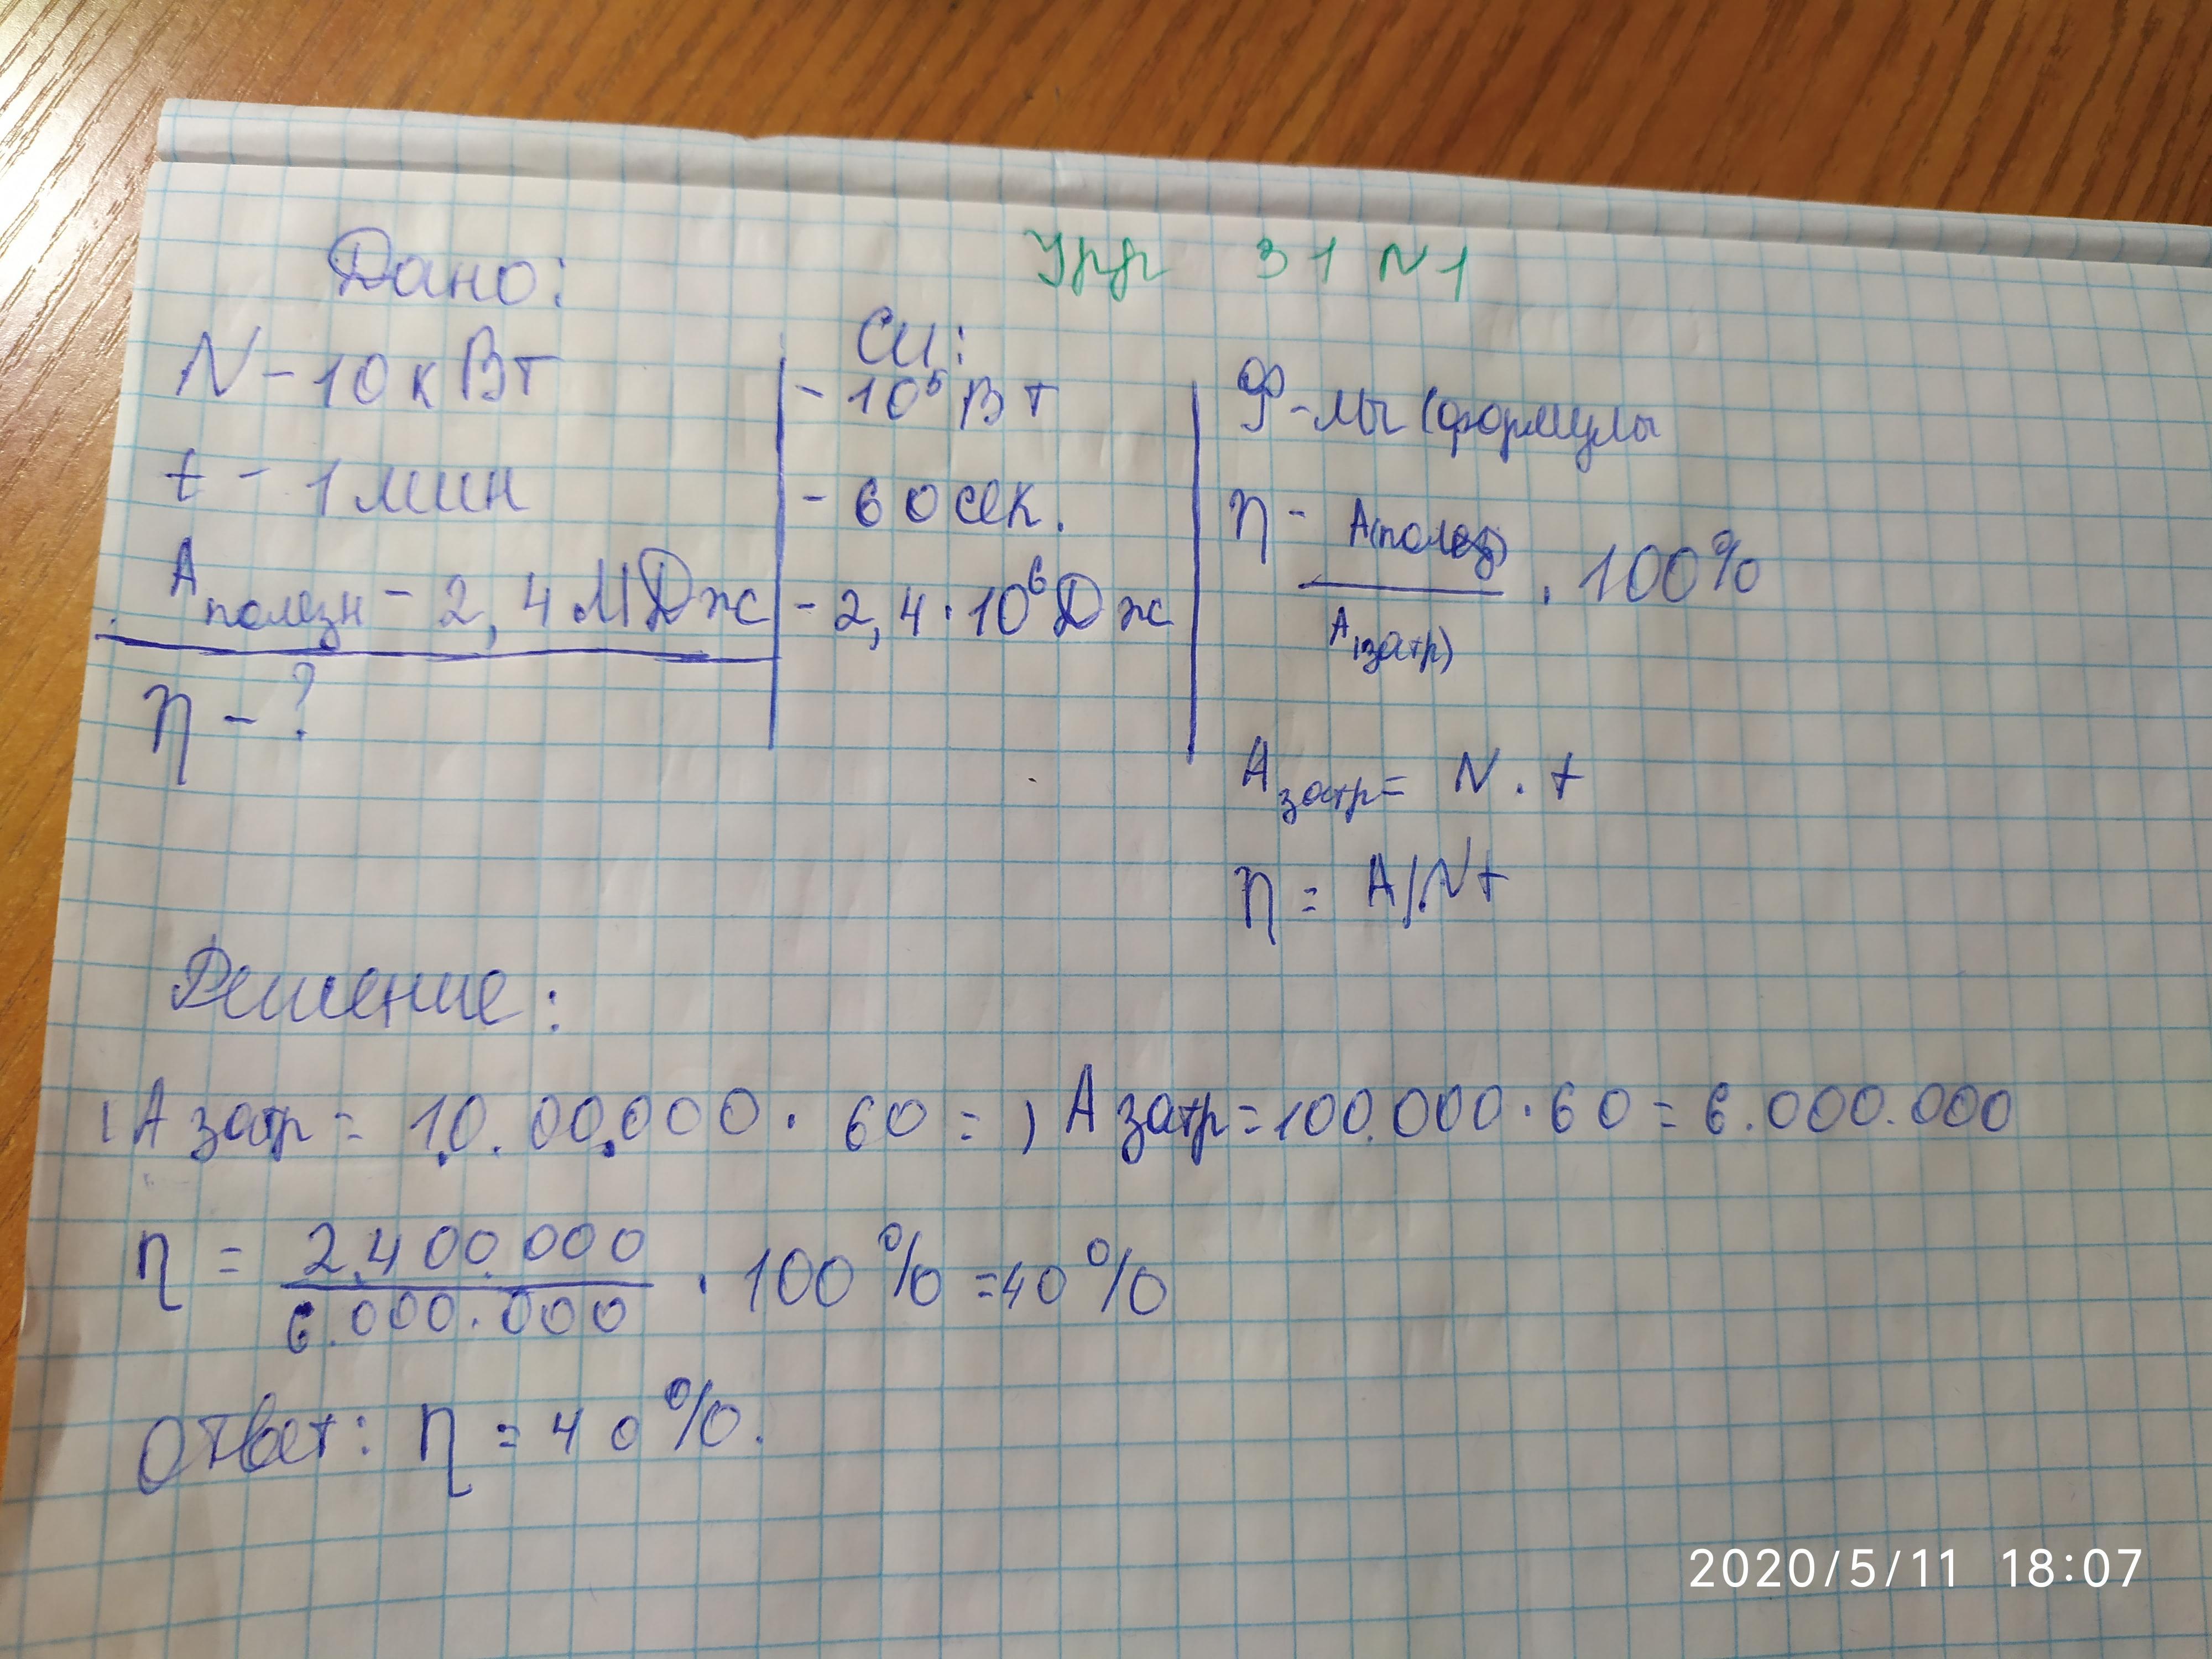 Упр 31 N1
Дано:
N - 10 кВт
t - 1 мин
А полезн - 2,4 МДж
η - ?
СИ:
- 10⁵ Вт
- 60 сек.
- 2,4 · 10⁶ Дж
Ф-лы (формулы
η - А(полез) / А(затр) · 100%
А затр = N · t
η = А/Nt
Решение:
А затр = 10.00.000 · 60 = ) А затр = 100.000 · 60 = 6.000.000
η = 2.400.000 / 6.000.000 · 100 % = 40 %
Ответ: η = 40 %.
2020/5/11 18:07